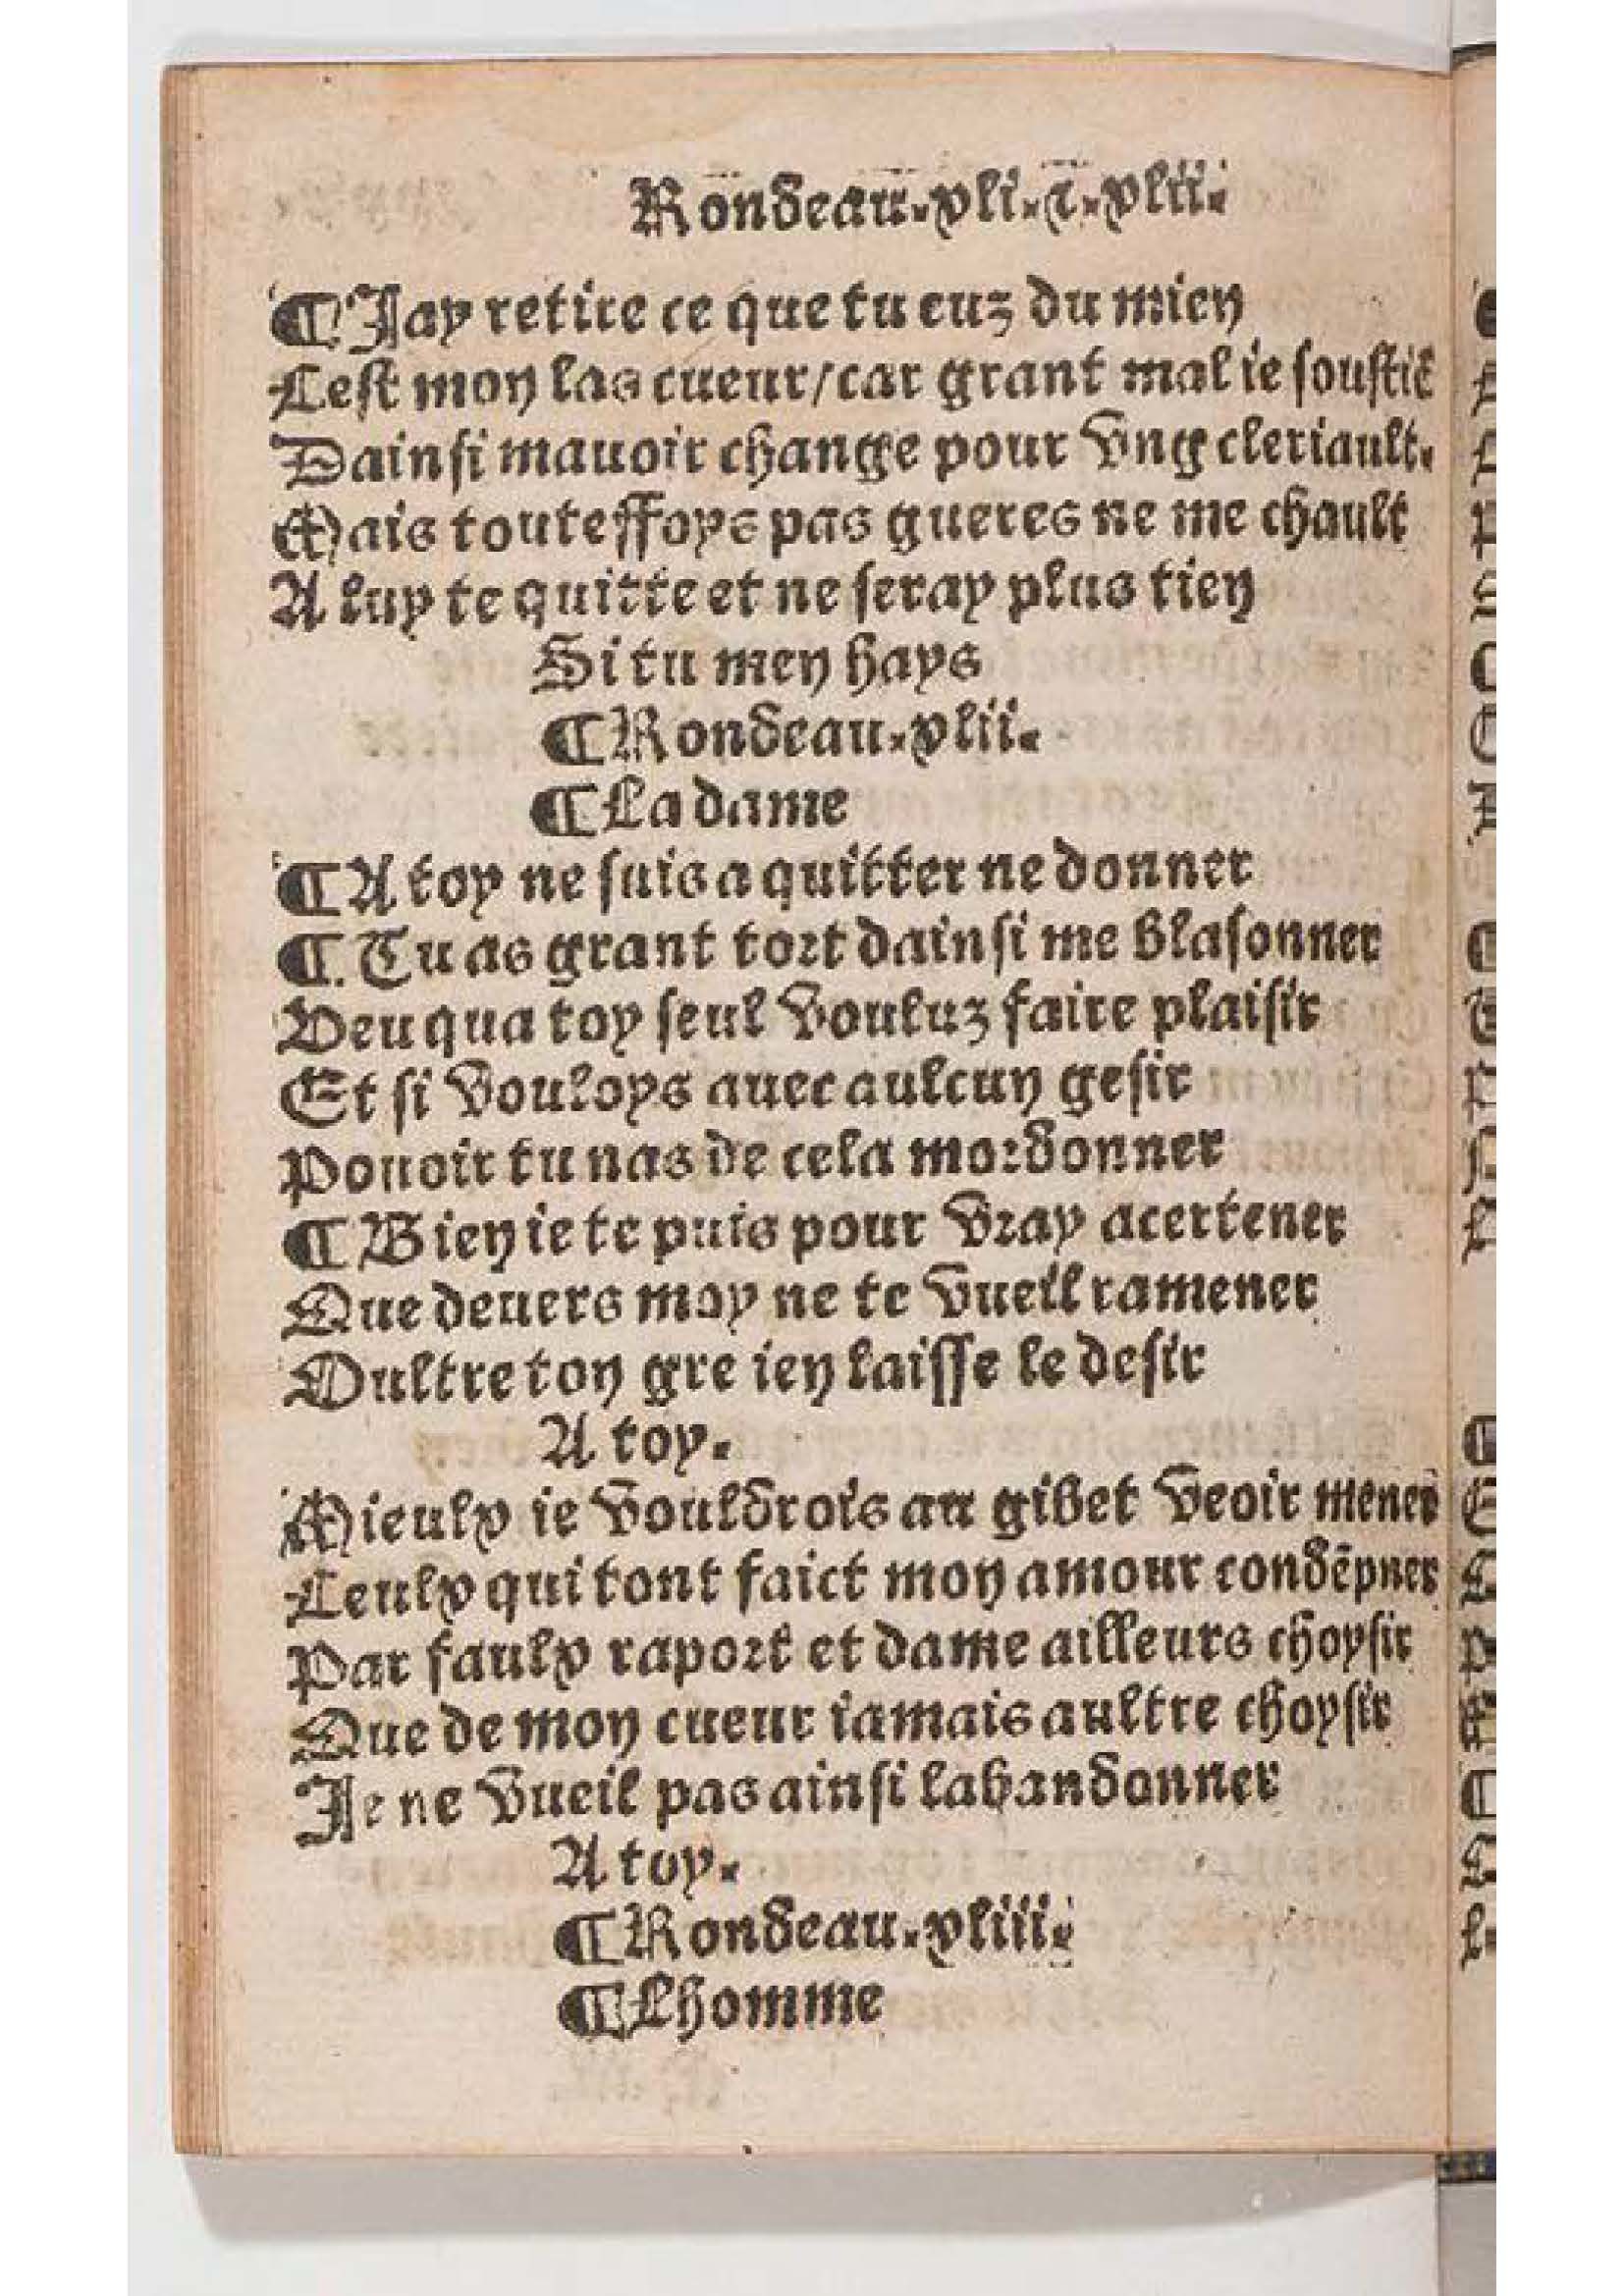 Rondeau.xli.⁊.xlii.
¶Jay retire ce que tu euz du mien
Cest mon las cueur/car grant mal ie soustiē
Dainsi mauoir change pour vng cleriault.
Mais touteffoys pas gueres ne me chault
A luy te quitte et ne seray plus tien
Si tu men hays
¶Rondeau.xlii.
¶La dame
¶A toy ne suis a quitter ne donner
¶Tu as grant tort dainsi me blasonner
Veu qua toy seul vouluz faire plaisir
Et si vouloys auec aulcun gesir
Pouoir tu nas de cela mordonner
¶Bien ie te puis pour vray acertener
Que deuers moy ne te vueil ramener
Oultre ton gre ien laisse le desir
A toy.
Mieulx ie vouldrois au gibet veoir mener
Ceulx qui tont faict mon amour condēpner
Par faulx raport et dame ailleurs choysir
Que de mon cueur iamais aultre choysir
Je ne vueil pas ainsi labandonner
A toy.
¶Rondeau.xliii.
¶Lhomme